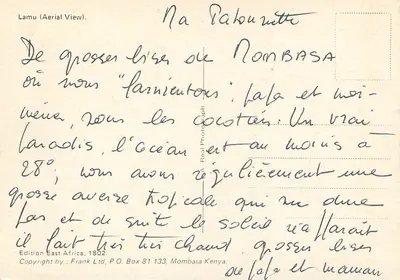 Lamu (Aerial View).
Ma Patounette
De grosses bises de MOMBASA
où nous "farnientons", papa et moi-
même, sous les cocotiers. Un vrai
paradis, l'océan est au moins à
28°; nous avons régulièrement une
grosse averse tropicale qui ne dure
pas et de suite le soleil réapparait
il fait très très chaud. grosses bises
de papa et maman
Real Photograph
Edition East Africa, 1802.
Copyright by : Frank Ltd, P.O. Box 81 133, Mombasa Kenya